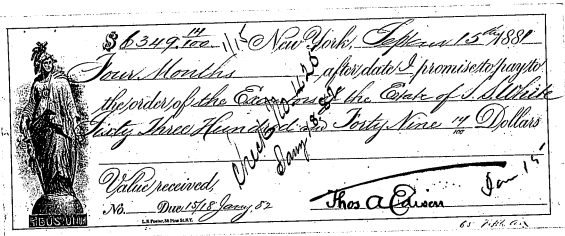 $6349.14/100 1/15 New York, Sepr 15th 1881
Four Months after date I promise to pay to
the order of the Executors of the Estate of S. S. White
Sixty Three Hundred and Forty Nine 14/100 Dollars
Check 10420
Jany 18 82
Value received,
No. Due 15/18 Jany, 82
Thos A Edison
Jan 15
L. B. Foster, 35 Pine St. N.Y.
65 Fifth Av